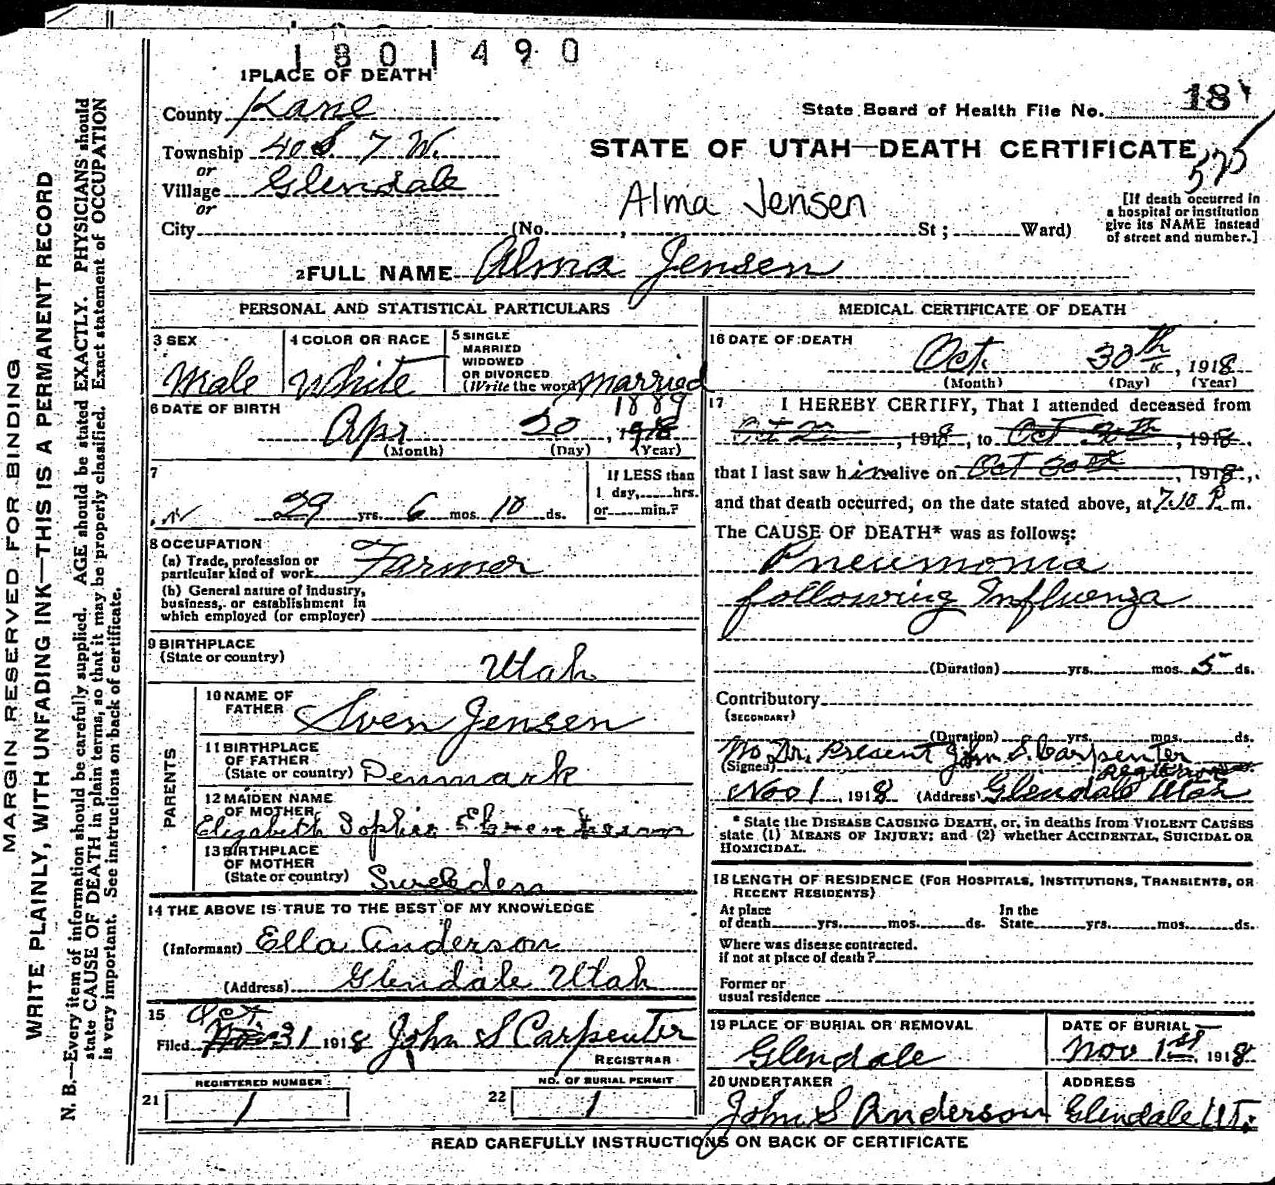 1801490
1 PLACE OF DEATH
County Kane
State Board of Health File No. 18
Township 40 S 7 W.
or
STATE OF UTAH—DEATH CERTIFICATE
575
Village Glendale
or
Alma Jensen
City (No. , St; Ward)
[If death occurred in
a hospital or institution
give its NAME instead
of street and number.]
2 FULL NAME Alma Jensen
PERSONAL AND STATISTICAL PARTICULARS
3 SEX
Male
4 COLOR OR RACE
White
5 SINGLE
MARRIED
WIDOWED
OR DIVORCED
(Write the word) Married
6 DATE OF BIRTH
1889
Apr 20, 1918
(Month) (Day) (Year)
7
29 yrs. 6 mos. 10 ds.
If LESS than
1 day, hrs.
or min.?
8 OCCUPATION
(a) Trade, profession or
particular kind of work Farmer
(b) General nature of industry,
business, or establishment in
which employed (or employer)
9 BIRTHPLACE
(State or country) Utah
PARENTS
10 NAME OF
FATHER Sven Jensen
11 BIRTHPLACE
OF FATHER
(State or country) Denmark
12 MAIDEN NAME
OF MOTHER
Elizabeth Sophie
13 BIRTHPLACE
OF MOTHER
(State or country) Sweden
14 THE ABOVE IS TRUE TO THE BEST OF MY KNOWLEDGE
(Informant) Ella Anderson
(Address) Glendale Utah
15 Oct
Filed Nov 31 1918 John S Carpenter
REGISTRAR
REGISTERED NUMBER
21 1
NO. OF BURIAL PERMIT
22 1
MEDICAL CERTIFICATE OF DEATH
16 DATE OF DEATH
Oct. 30th, 1918
(Month) (Day) (Year)
17 I HEREBY CERTIFY, That I attended deceased from
Oct, 1918, to Oct 30th, 1918.
that I last saw him alive on Oct 30th, 1918,
and that death occurred, on the date stated above, at 7.10 P. m.
The CAUSE OF DEATH* was as follows:
Pneumonia
following Influenza
(Duration) yrs. mos. 5 ds.
Contributory
(SECONDARY)
(Duration) yrs. mos. ds.
No Dr. Present John S. Carpenter
(Signed) Registrar
Nov 1, 1918 (Address) Glendale Utah
* State the DISEASE CAUSING DEATH, or, in deaths from VIOLENT CAUSES
state (1) MEANS OF INJURY; and (2) whether ACCIDENTAL, SUICIDAL OR
HOMICIDAL.
18 LENGTH OF RESIDENCE (FOR HOSPITALS, INSTITUTIONS, TRANSIENTS, OR
RECENT RESIDENTS)
At place In the
of death yrs. mos. ds. State yrs. mos. ds.
Where was disease contracted.
if not at place of death?
Former or
usual residence
19 PLACE OF BURIAL OR REMOVAL
Glendale
DATE OF BURIAL
Nov 1st, 1918
20 UNDERTAKER
John S Anderson
ADDRESS
Glendale Ut.
READ CAREFULLY INSTRUCTIONS ON BACK OF CERTIFICATE
MARGIN RESERVED FOR BINDING
WRITE PLAINLY, WITH UNFADING INK—THIS IS A PERMANENT RECORD
N. B.—Every item of information should be carefully supplied. AGE should be stated EXACTLY. PHYSICIANS should
state CAUSE OF DEATH in plain terms, so that it may be properly classified. Exact statement of OCCUPATION
is very important. See instructions on back of certificate.